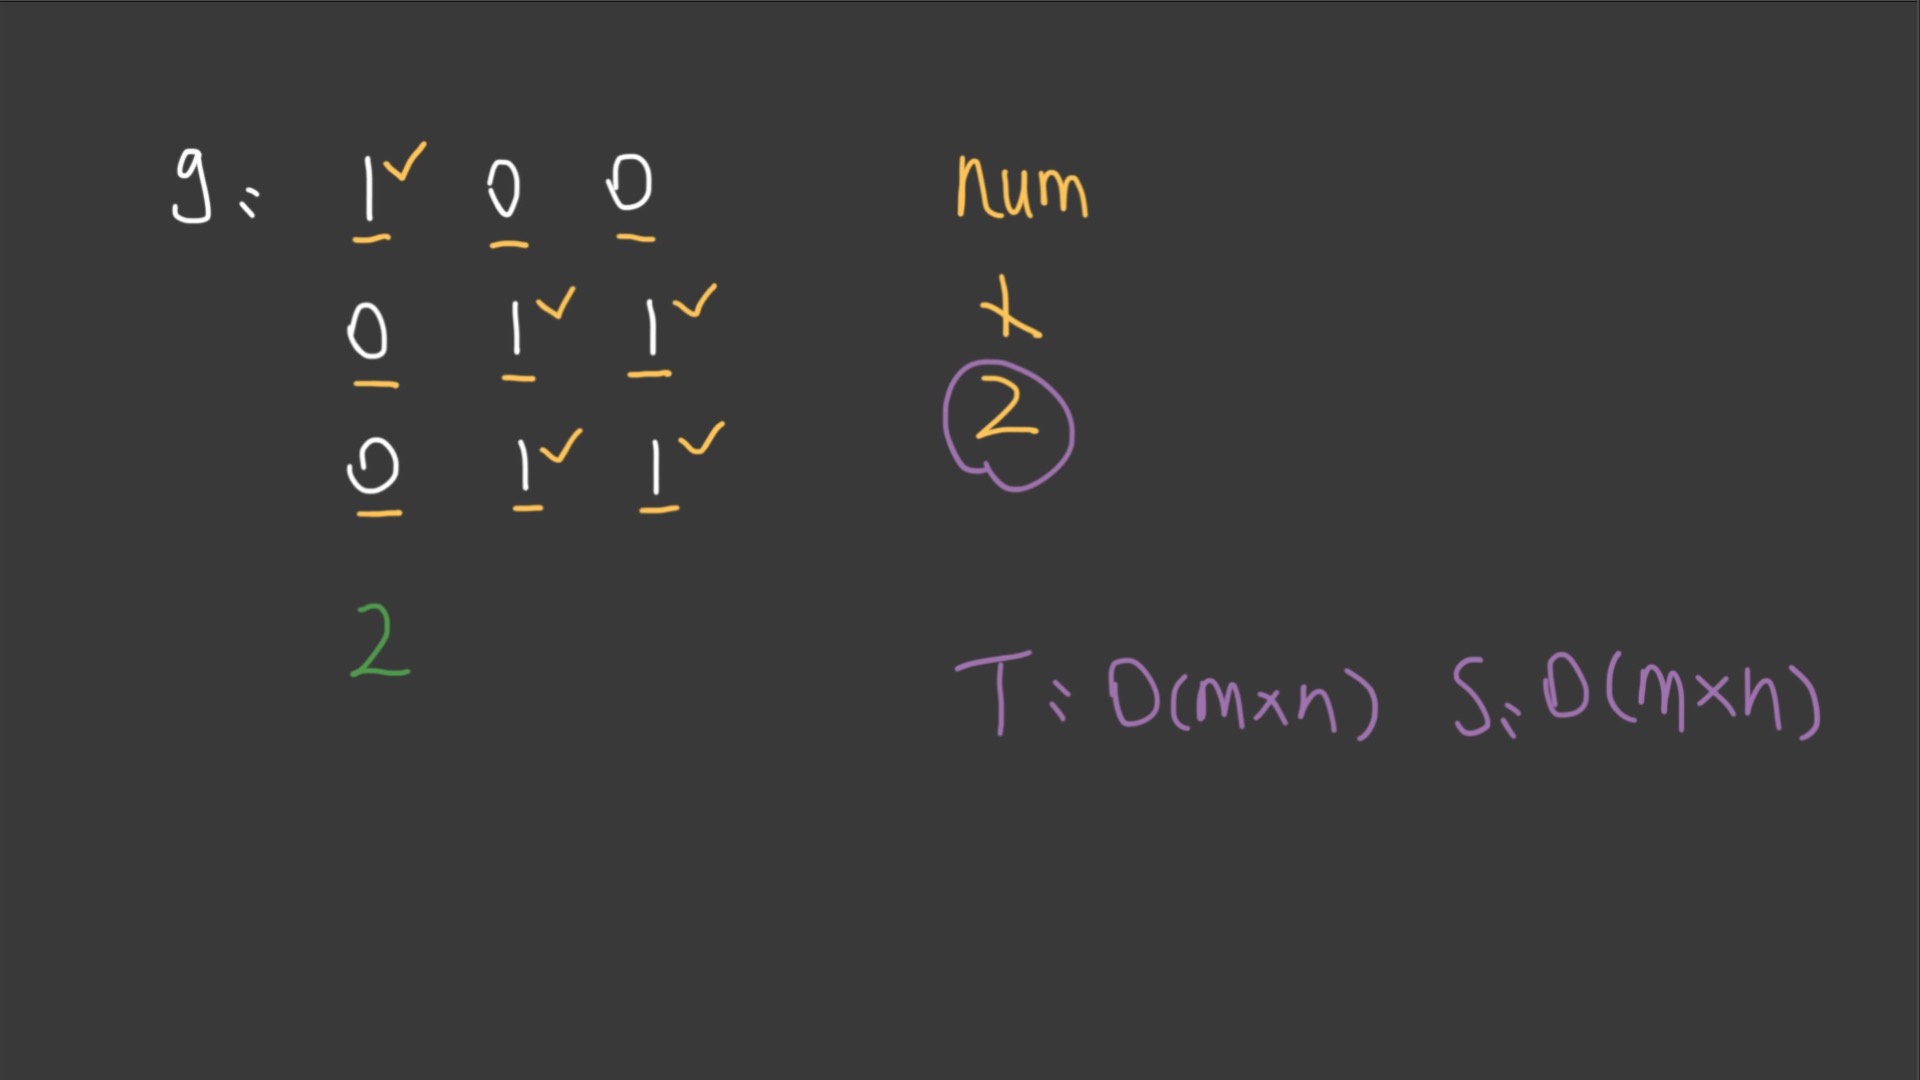 g: 1✓ 0 0
0 1✓ 1✓
0 1✓ 1✓
2
num
1
2
T: O(m×n) S: O(m×n)